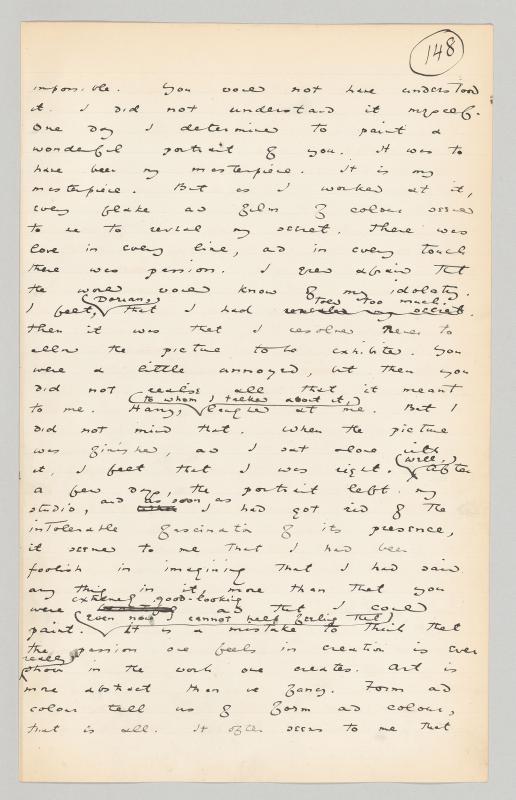 148
impossible. You would not have understood
it. I did not understand it myself.
One day I determined to paint a
wonderful portrait of you. It was to
have been my masterpiece. It is my
masterpiece. But as I worked at it,
every flake and film of colour seemed
to me to reveal my secret. There was
love in every line, and in every touch
there was passion. I grew afraid that
the world would know of my idolatry.
I felt, Dorian, that I had told too much.
Then it was that I resolved never to
allow the picture to be exhibited. You
were a little annoyed, but then you
did not realise all that it meant
to me. Harry, to whom I talked about it, laughed at me. But I
did not mind that. When the picture
was finished, and I sat alone with
it, I felt that I was right. Well, after
a few days, the portrait left my
studio, and as soon as I had got rid of the
intolerable fascination of its presence,
it seemed to me that I had been
foolish in imagining that I had said
anything in it more than that you
were extremely good-looking and that I could
paint. Even now I cannot help feeling that it is a mistake to think that
the passion one feels in creation is ever
really shown in the work one creates. Art is
more abstract than we fancy. Form and
colour tell us of form and colour,
that is all. It often seems to me that